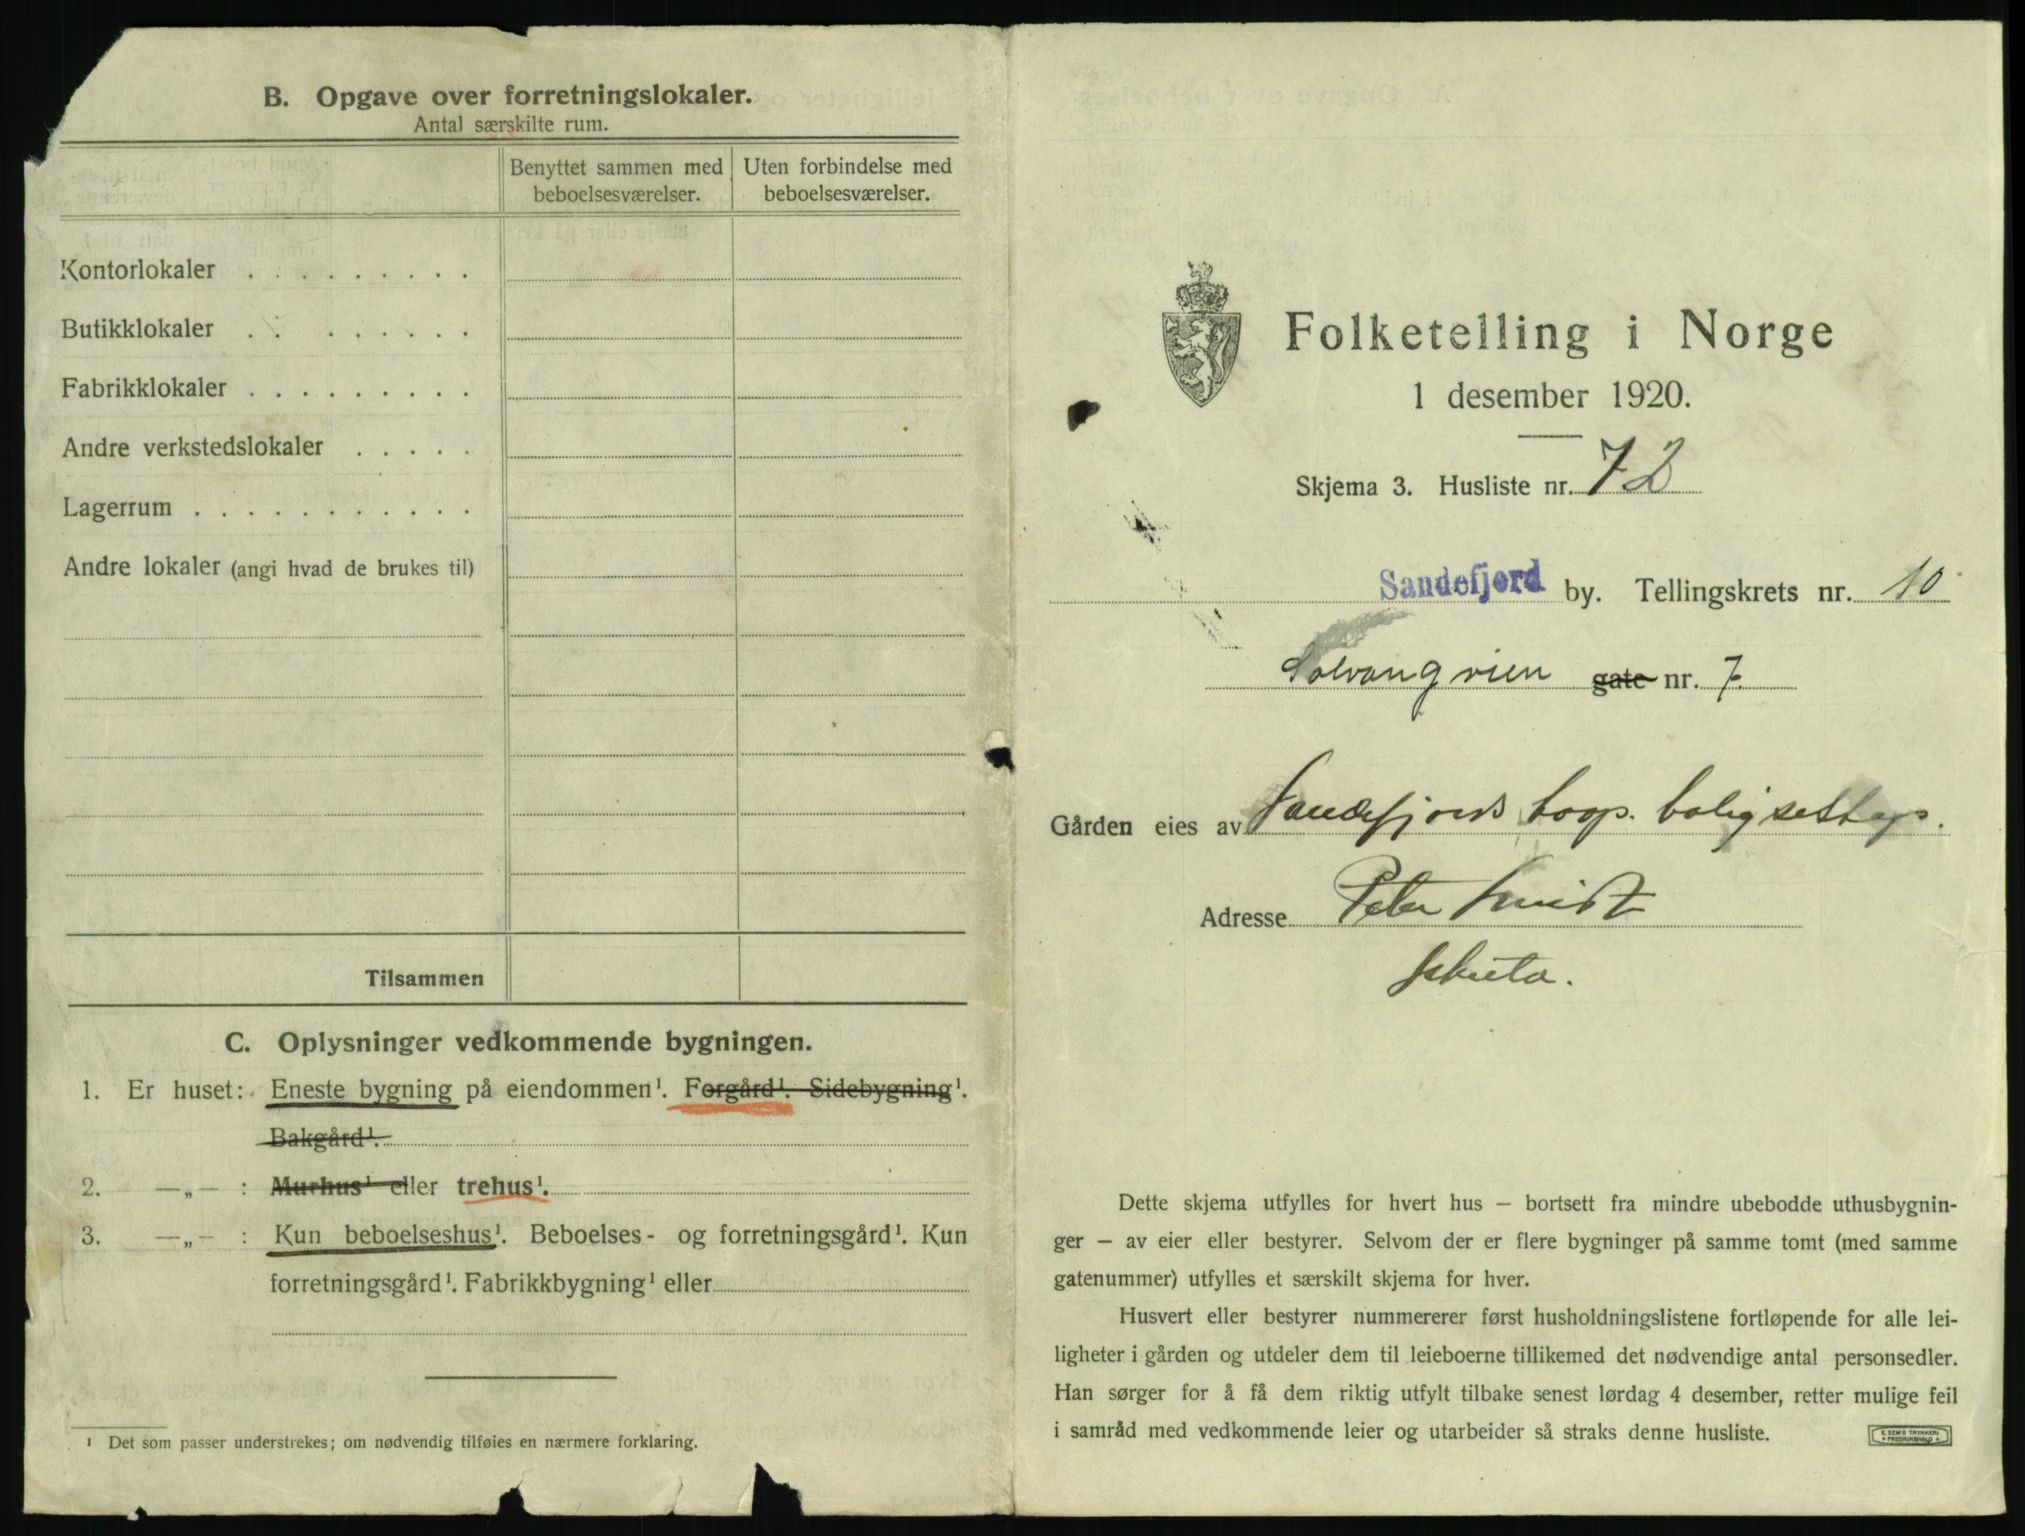 B. Opgave over forretningslokaler.
Antal særskilte rum.
Benyttet sammen med beboelsesværelser.
Uten forbindelse med beboelsesværelser.
Kontorlokaler . . . . . . . . .
Butikklokaler . . . . . . . .
Fabrikklokaler . . . . . . . . .
Andre verkstedslokaler . . . . .
Lagerrum . . . . . . . . . . .
Andre lokaler (angi hvad de brukes til)
Tilsammen
C. Oplysninger vedkommende bygningen.
1. Er huset: Eneste bygning på eiendommen¹. Forgård¹. Sidebygning¹.
Bakgård¹.
2. —„— : Murhus¹ eller trehus¹.
3. —„— : Kun beboelseshus¹. Beboelses- og forretningsgård¹. Kun
forretningsgård¹. Fabrikkbygning¹ eller
¹ Det som passer understrekes; om nødvendig tilføies en nærmere forklaring.
Folketelling i Norge
1 desember 1920.
Skjema 3. Husliste nr. 72
Sandefjord by. Tellingskrets nr. 10
Solvangvien gate nr. 7.
Gården eies av Sandefjords boligselskap.
Adresse Peter
Dette skjema utfylles for hvert hus — bortsett fra mindre ubebodde uthusbygnin-
ger — av eier eller bestyrer. Selvom der er flere bygninger på samme tomt (med samme
gatenummer) utfylles et særskilt skjema for hver.
Husvert eller bestyrer nummererer først husholdningslistene fortløpende for alle lei-
ligheter i gården og utdeler dem til leieboerne tillikemed det nødvendige antal personsedler.
Han sørger for å få dem riktig utfylt tilbake senest lørdag 4 desember, retter mulige feil
i samråd med vedkommende leier og utarbeider så straks denne husliste.
E. SEM'S TRYKKERI
• FREDRIKSHALD •